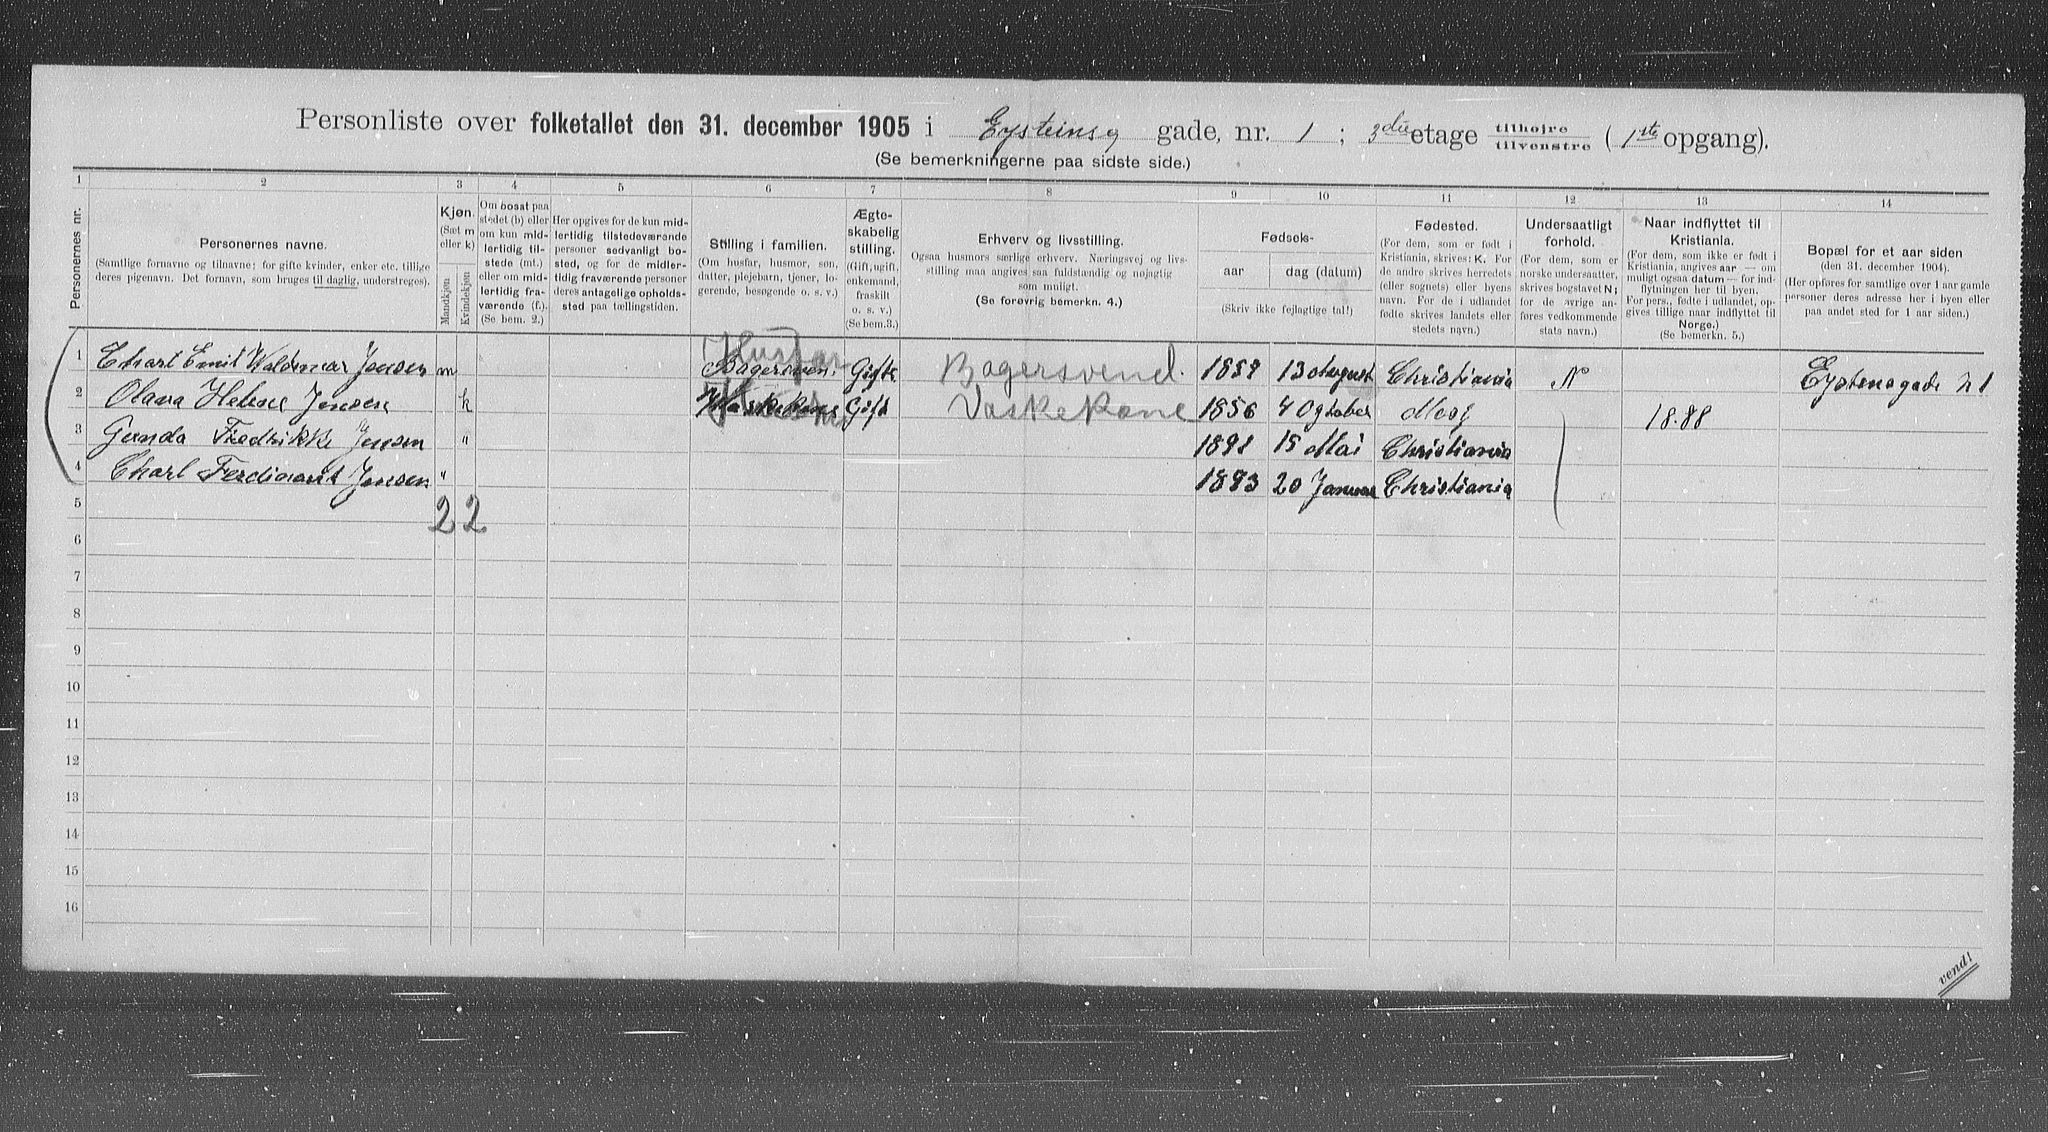 Personliste over folketallet den 31. december 1905 i Eysteinsg gade, nr. 1 ; 3die etage tilhøjre tilvenstre ( 1ste opgang).
(Se bemerkningerne paa sidste side.)
1 2 3 4 5 6 7 8 9 10 11 12 13 14
Personernes nr.
Personernes navne.
(Samtlige fornavne og tilnavne; for gifte kvinder, enker etc. tillige
deres pigenavn. Det fornavn, som bruges til daglig, understreges).
Kjøn.
(Sæt m
eller k)
Mandkjøn
Kvindekjøn
Om bosat paa
stedet (b) eller
om kun mid-
lertidig til-
stede (mt.)
eller om mid-
lertidig fra-
værende (f.).
(Se bem. 2.)
Her opgives for de kun mid-
lertidig tilstedeværende
personer sedvanligt bo-
sted, og for de midler-
tidig fraværende personer
deres antagelige opholds-
sted paa tællingstiden.
Stilling i familien.
(Om husfar, husmor, søn,
datter, plejebarn, tjener, lo-
gerende, besøgende o. s. v.)
Ægte-
skabelig
stilling.
(Gift, ugift,
enkemand,
fraskilt
o. s. v.)
(Se bem.3.)
Erhverv og livsstilling.
Ogsaa husmors særlige erhverv. Næringsvej og livs-
stilling maa angives saa fuldstændig og nøjagtig
som muligt.
(Se forøvrig bemerkn. 4.)
Fødsels-
aar dag (datum)
(Skriv ikke fejlagtige tal!)
Fødested.
(For dem, som er født i
Kristiania, skrives: K. For
de andre skrives herredets
(eller sognets) eller byens
navn. For de i udlandet
fødte skrives landets eller
stedets navn.)
Undersaatligt
forhold.
(For dem, som er
norske undersaatter,
skrives bogstavet N;
for de øvrige an-
føres vedkommende
stats navn.)
Naar indflyttet til
Kristiania.
(For dem, som ikke er født i
Kristiania, angives aar — om
muligt ogsaa datum — for ind-
flytningen her til byen.
For pers., fødte i udlandet, op-
gives tillige naar indflyttet til
Norge.)
(Se bemerkn. 5.)
Bopæl for et aar siden
(den 31. december 1904).
(Her opføres for samtlige over 1 aar gamle
personer deres adresse her i byen eller
paa andet sted for 1 aar siden.)
1 Charl Emil Waldmar Jensen m Husfar Bagersven. Gift Bagersvend. 1859 13 August Christiania N Eystensgade N 1
2 Olava Helene Jensen k Vaskekone Gift Vaskekone 1856 4 Ogtober Mosj 18.88
3 Gunda Fredrikke Jensen " 1891 15 Mai Christiania
4 Charl Ferdinant Jensen " 1893 20 Januar Christiania
5 2 2
6
7
8
9
10
11
12
13
14
15
16
vend!